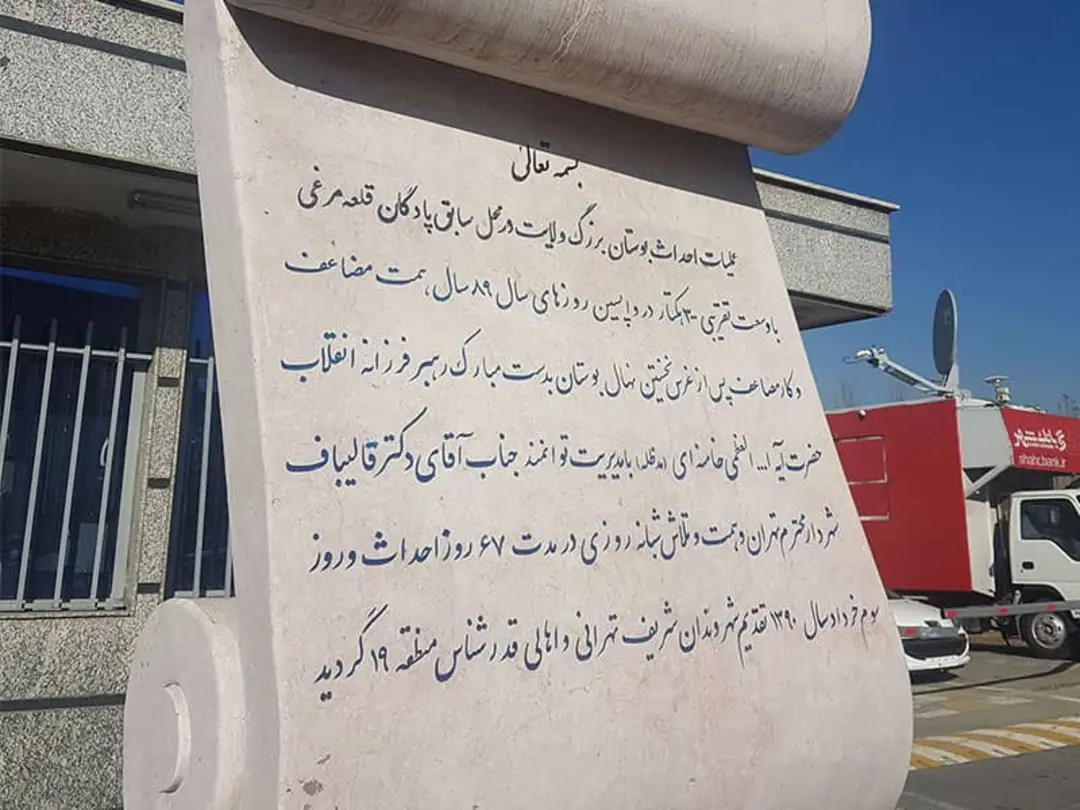 بسمه تعالی
عملیات احداث بوستان بزرگ ولایت در محل سابق پادگان قلعه مرغی
با وسعت تقریبی ۳۰۰ هکتار در واپسین روزهای سال ۸۹ سال، همت مضاعف
و کار مضاعف پس از غرس نخستین نهال بوستان بدست مبارک رهبر فرزانه انقلاب
حضرت آیة ا... العظمی خامنه ای (مدظله) با مدیریت توانمند جناب آقای دکتر قالیباف
شهردار محترم تهران و همت و تلاش شبانه روزی در مدت ۶۷ روز احداث و روز
سوم خرداد سال ۱۳۹۰ تقدیم شهروندان شریف تهرانی و اهالی قدرشناس منطقه ۱۹ گردید
بانک شهر
shahr-bank.ir